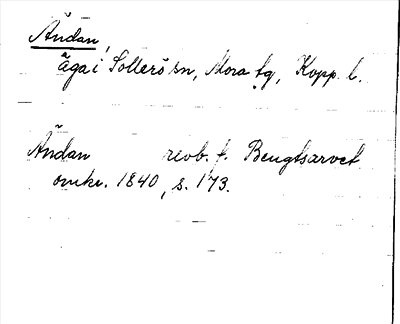 Ändan,
äga i Sollerö sn, Mora tg, Kopp. l.
Ändan revb. t. Bengtsarvet
omkr. 1840, s. 173.